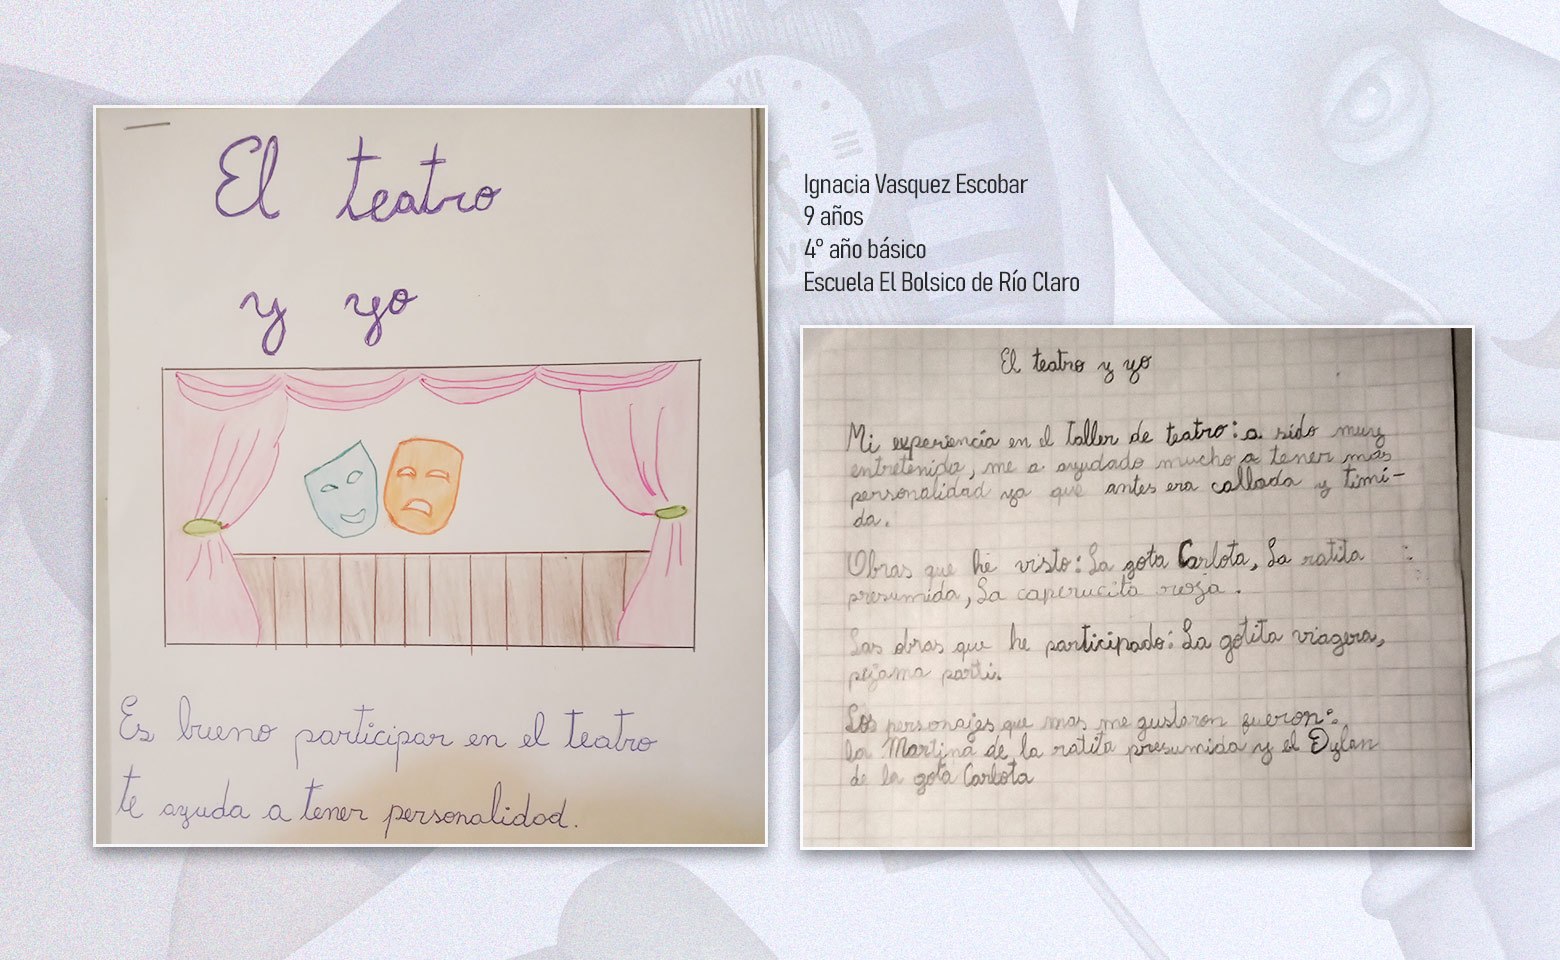 El teatro
y yo
Es bueno participar en el teatro
te ayuda a tener personalidad.
Ignacia Vasquez Escobar
9 años
4º año básico
Escuela El Bolsico de Río Claro
El teatro y yo
Mi experiencia en el taller de teatro: a sido muy
entretenida, me a ayudado mucho a tener más
personalidad ya que antes era callada y timi-
da.
Obras que he visto: La gota Carlota, La ratita
presumida, La caperucita roja.
Las obras que he participado: La gotita viagera,
pejama parti.
Los personajes que mas me gustaron fueron:
la Martina de la ratita presumida y el Dylan
de la gota Carlota
XII